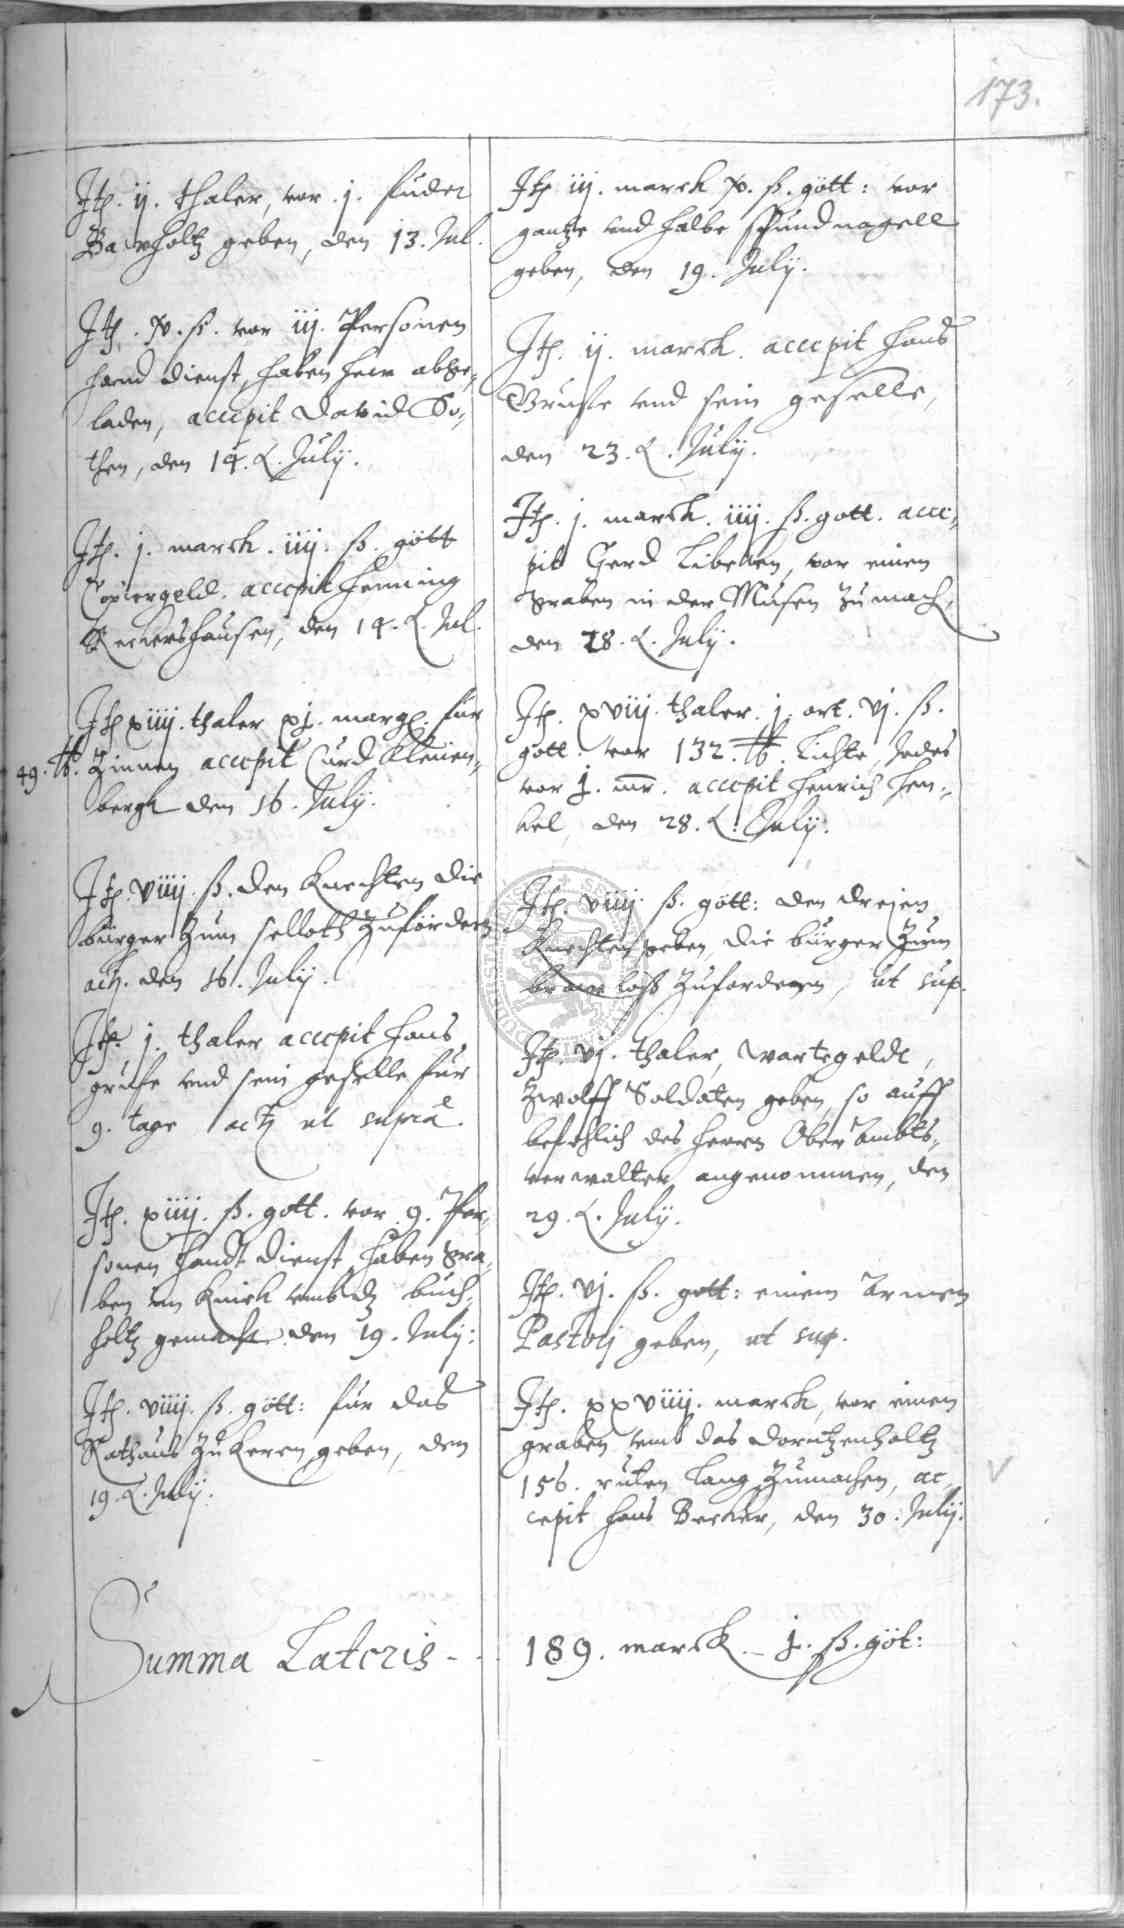 173.
Itē. ij. thaler, vor .j. fuder
Bawholtz geben, den 13. Jul.
Itē. x. ß. vor iij. Personen
hand dienst, haben hew abge„
laden, accepit David Go„
then, den 14. Julÿ.
Itē. j. marck. iiij. ß. gött
Copiergeld. accepit Henning
Reckershausen, den 14. Jul.
Itē xiiij. thaler xj. marg. für
49. ℔. Zinnen accepit Curd Kleinen„
bergk den 16. Julÿ.
Itē. viiij. ß. den Knechten die
bürger zum zufördern
den 16. Julÿ.
Itē. j. thaler accepit Hans
gruse vnd sein geselle für
9. tage ut supra.
Itē. xiiij. ß. gott. vor 9. Per„
sonen handt dienst, haben gra„
ben am Knick vmb dz buch„
holtz gemacht den 19. Julÿ:
Itē. viiij. ß. gött: für das
Rathaus zukeren geben, den
19. Julÿ.
Itē iij. marck x. ß. gött: vor
gantze vnd halbe pfundnagell
geben, den 19. Julÿ.
Itē. ij. marck. accepit Hans
Gruse vnd sein geselle,
den 23. Julÿ.
Itē. j. marck. iiij. ß. gott. acce„
pit Gerd Libenen, vor einen
graben in der Musen zumach,
den 28. Julÿ.
Itē. xviij. thaler. j. ort. vj. ß.
gött. vor 132. ℔. Lichte, Jedes
vor j. mr. accepit Henrich Hen„
kel, den 28. Julÿ.
Itē. viiij. ß. gött: den dreien
Knechten geben, die bürger zum
zufordern, ut sup.
Itē. vj. thaler, wartegelde,
Zwolff Soldaten geben, so auff
befehlich des herrn Ober Ambts„
verwalter angenommen, den
29. Julÿ.
Itē. vj. ß. gott: einem Armen
Pastorj geben, ut sup.
Itē. xxviiij. marck, vor einen
graben vmb das
156. ruten lang zumachen, ac
cepit Hans Becker, den 30. Julÿ.
Summa Lateris - - 189. marck - j. ß. göt: